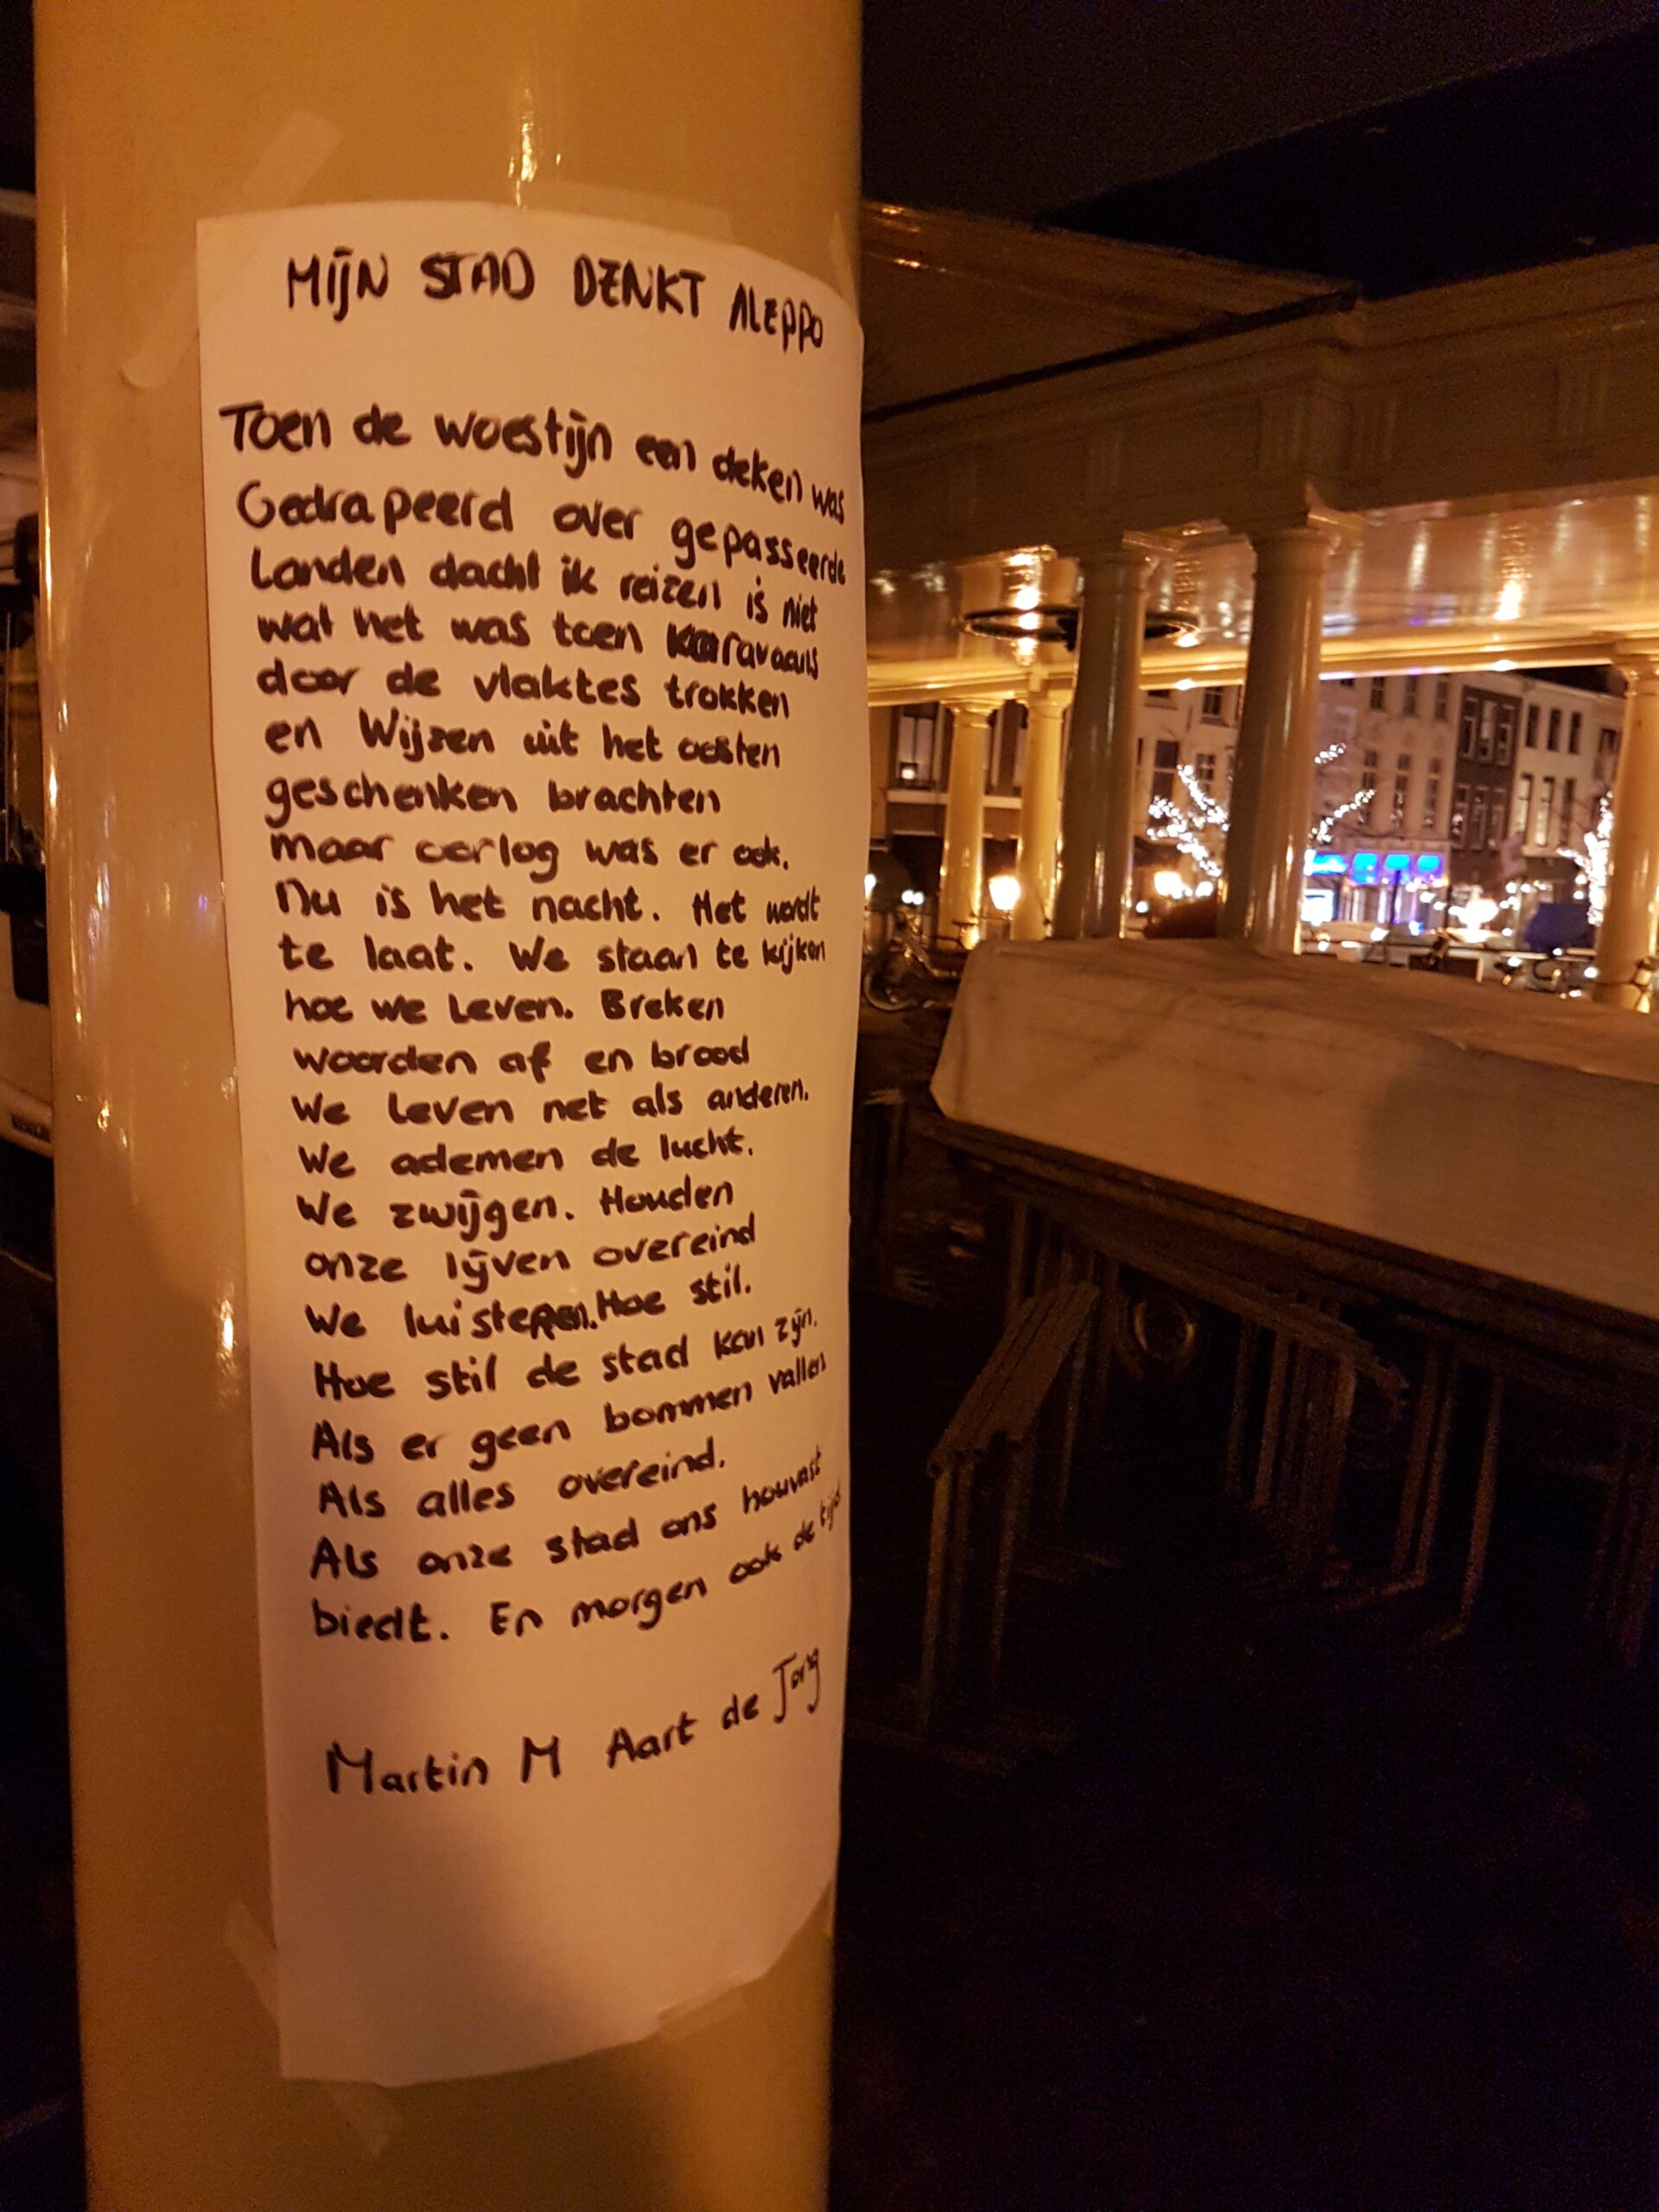 MIJN STAD DENKT ALEPPO
Toen de woestijn een deken was
Gedrapeerd over gepasseerde
Landen dacht ik reizen is niet
wat het was toen karavaans
door de vlaktes trokken
en Wijzen uit het oosten
geschenken brachten
maar oorlog was er ook.
Nu is het nacht. Het wordt
te laat. We staan te kijken
hoe we Leven. Breken
woorden af en brood
We Leven net als anderen.
We ademen de lucht.
We zwijgen. Houden
onze lijven overeind
We luisteren. Hoe stil.
Hoe stil de stad kan zijn.
Als er geen bommen vallen
Als alles overeind.
Als onze stad ons houvast
biedt. En morgen ook de tijd
Martin M Aart de Jong